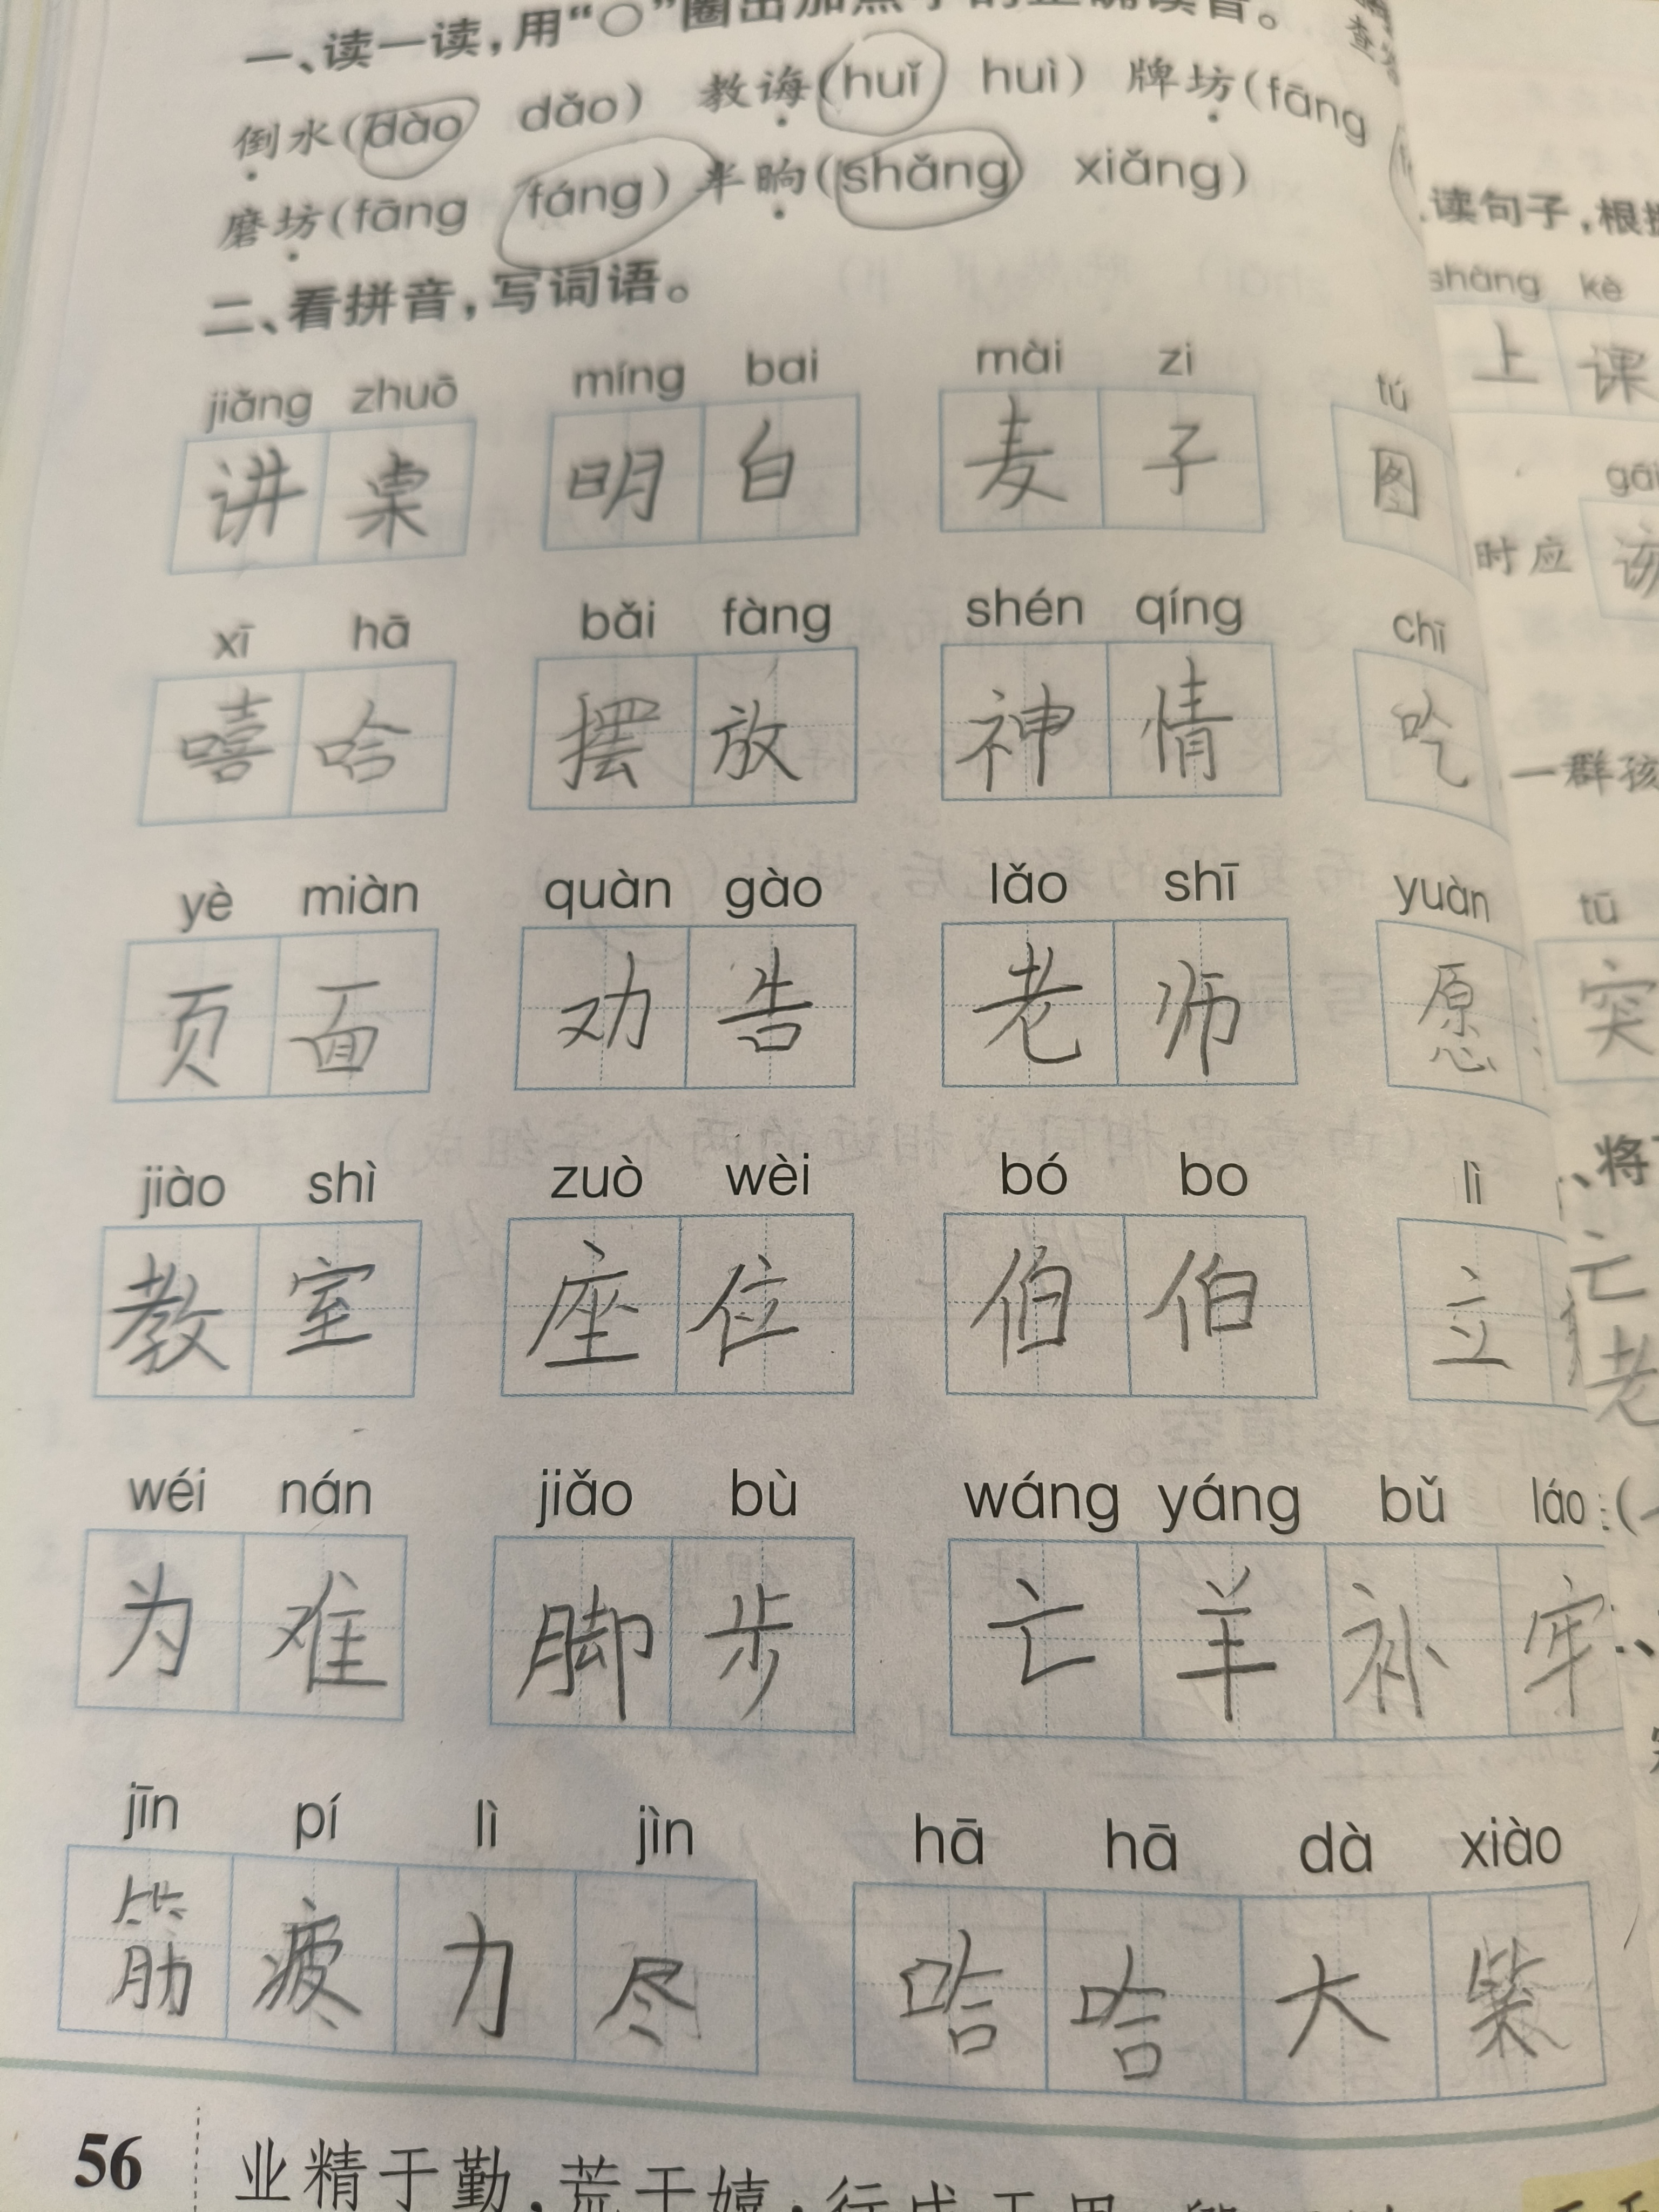 一、读一读，用“○”圈出加点字的正确读音。
倒水(dào dǎo) 教诲(huǐ huì) 牌坊(fāng
磨坊(fāng fáng) 半晌(shǎng xiǎng)
二、看拼音，写词语。
jiǎng zhuō míng bai mài zi tú
讲 桌 明 白 麦 子 图
xī hā bǎi fàng shén qíng chī
嘻 哈 摆 放 神 情 吃
yè miàn quàn gào lǎo shī yuàn
页 面 劝 告 老 师 愿
jiào shì zuò wèi bó bo lì
教 室 座 位 伯 伯 立
wéi nán jiǎo bù wáng yáng bǔ láo
为 难 脚 步 亡 羊 补 牢
jīn pí lì jìn hā hā dà xiào
筋 疲 力 尽 哈 哈 大
56
业精于勤，荒于嬉；行成于思
查
读句子，根据
shàng kè
上 课
gāi
时应 该
一群孩
tū
突
、将
亡
老